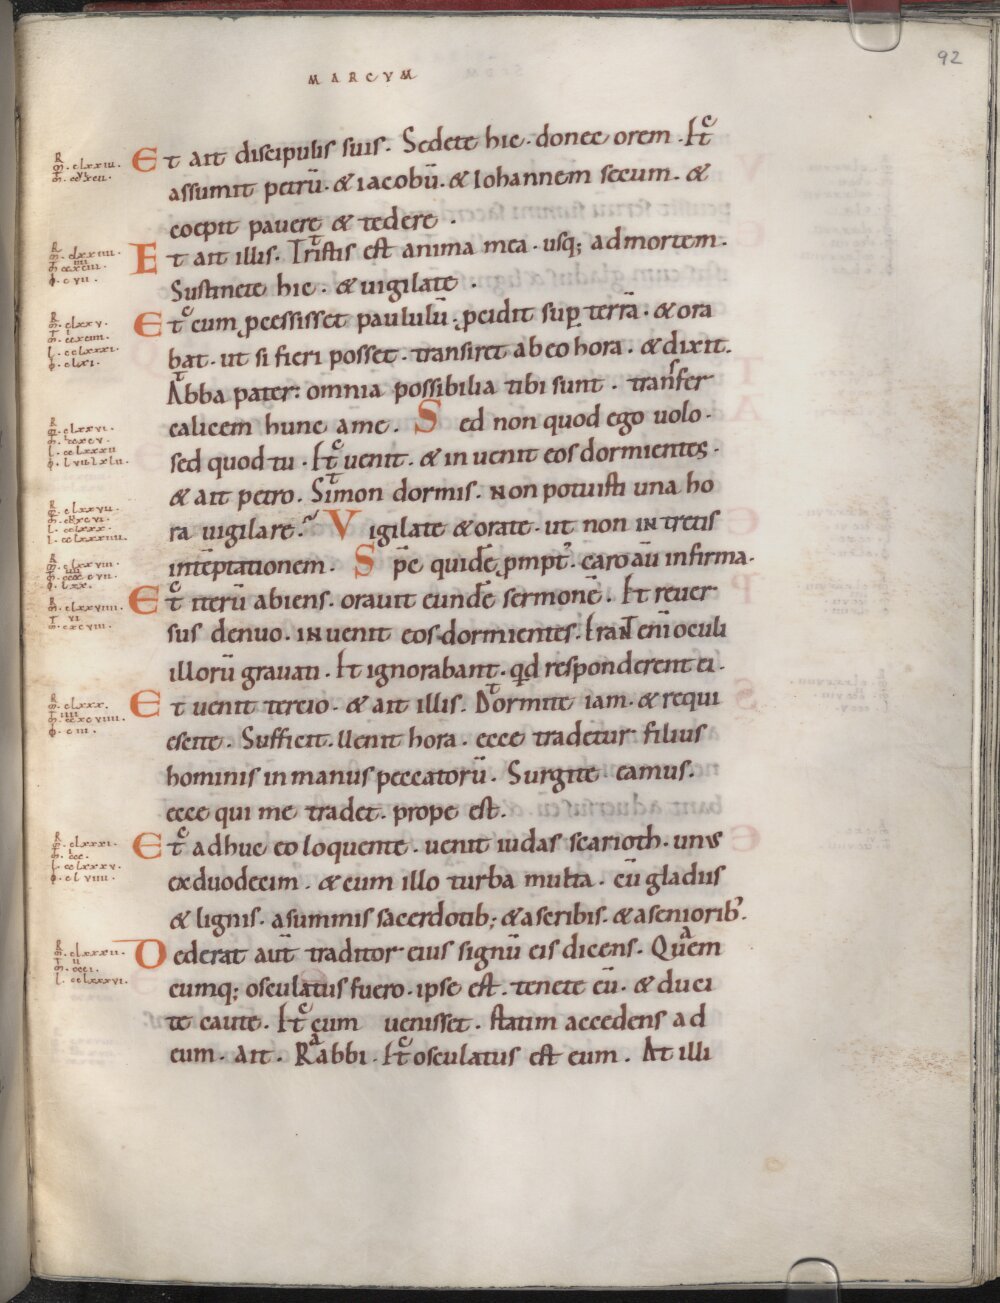 92
MARCVM
Et ait discipulis suis. Sedete hic. donec orem. Et
assumit petrū. & iacobū. & Iohannem secum. &
coepit pauere & tedere.
Et ait illis. Tristis est anima mea. usq; admortem.
Sustinete hic. & uigilate.
Et cum pcessisset paululū. pcidit sup terrā. & ora
bat. ut si fieri posset. transiret abeo hora. & dixit.
Abba pater: omnia possibilia tibi sunt. transfer
calicem hunc ame. Sed non quod ego uolo.
sed quod tu. Et uenit. & inuenit eos dormientes.
& ait petro. Simon dormis. non potuisti una ho
ra uigilare? Vigilate & orate. ut non intretis
intēptationem. Sp̄s quidē pmpt'. caro aū infirma.
Et iterū abiens. orauit eundē sermonē. Et reuer
sus denuo. inuenit eos dormientes. Erant eni oculi
illorū grauati. Et ignorabant. qd responderent ei.
Et uenit tercio. & ait illis. Dormite iam. & requi
escite. Sufficit. Uenit hora. ecce tradetur filius
hominis in manus peccatorū. Surgite eamus.
ecce qui me tradet. prope est.
Et adhuc eo loquente. uenit iudas scarioth. unus
ex duodecim. & cum illo turba multa. cū gladiis
& lignis. asummis sacerdotib; & ascribis. & asenioribꝰ.
Dederat aut̄ traditor eius signū eis dicens. Quem
cumq; osculatus fuero. ipse est. tenete eū. & duci
te caute. Et cum uenisset. statim accedens ad
eum. ait. Rabbi. Et osculatus est eum. At illi